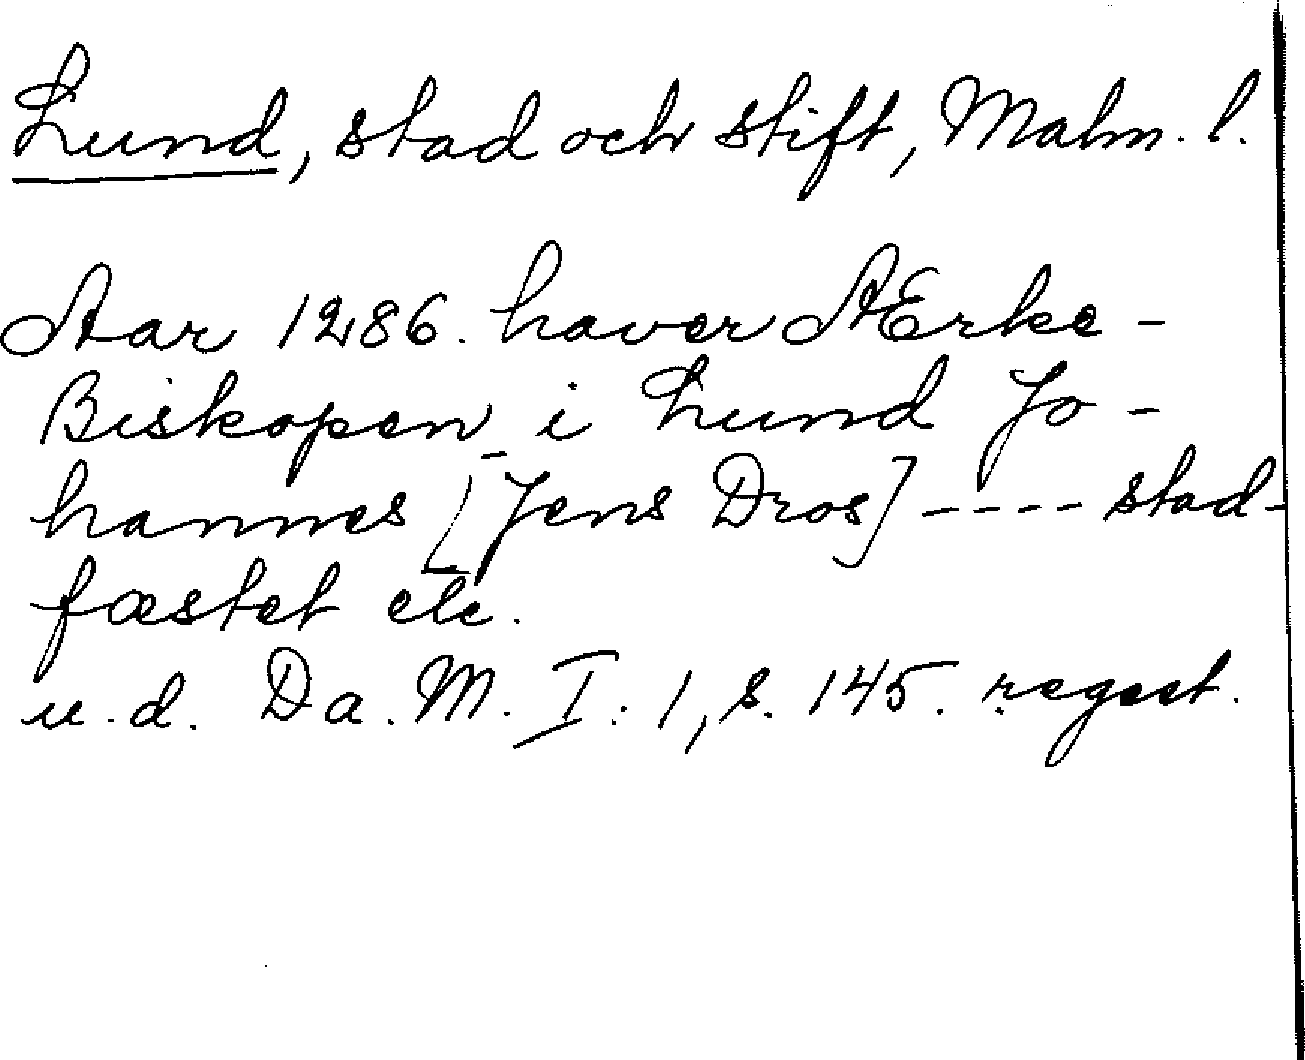 Lund, stad och stift, Malm. l.
Aar 1286. haver Ærke-
Biskopen i Lund Jo-
hannes [Jens Dros] ---- stad-
fæstet etc.
u.d. Da. M. I: 1, s. 145. regest.